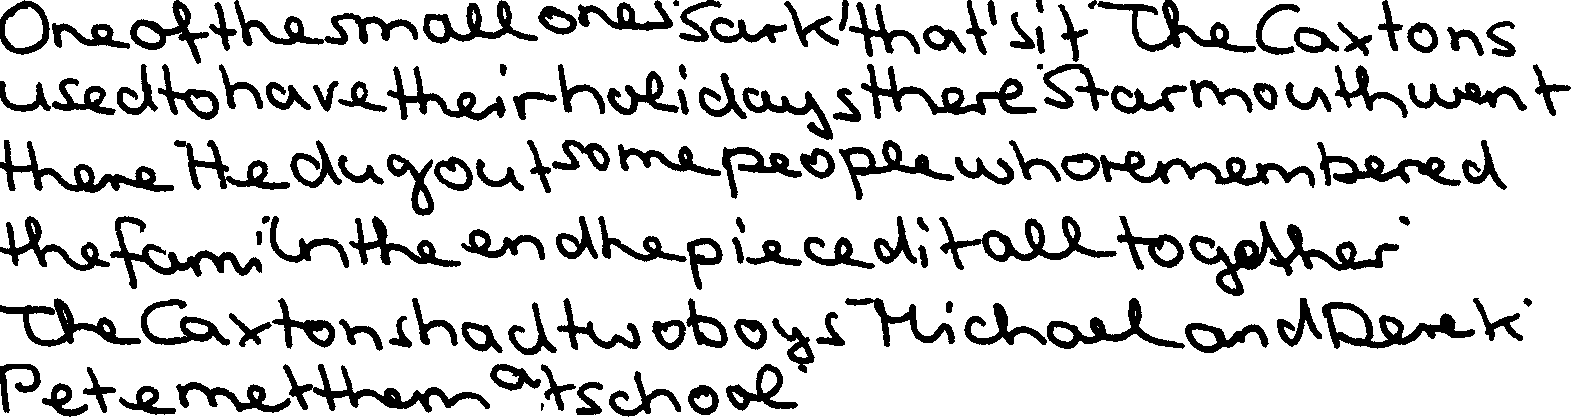 One of the small ones. Sark, that's it. The Caxtons
used to have their holidays there. Starmouth went
there. He dug out some people who remembered
the In the end he pieced it all together.
The Caxtons had two boys Michael and Derek.
Pete met them at school.